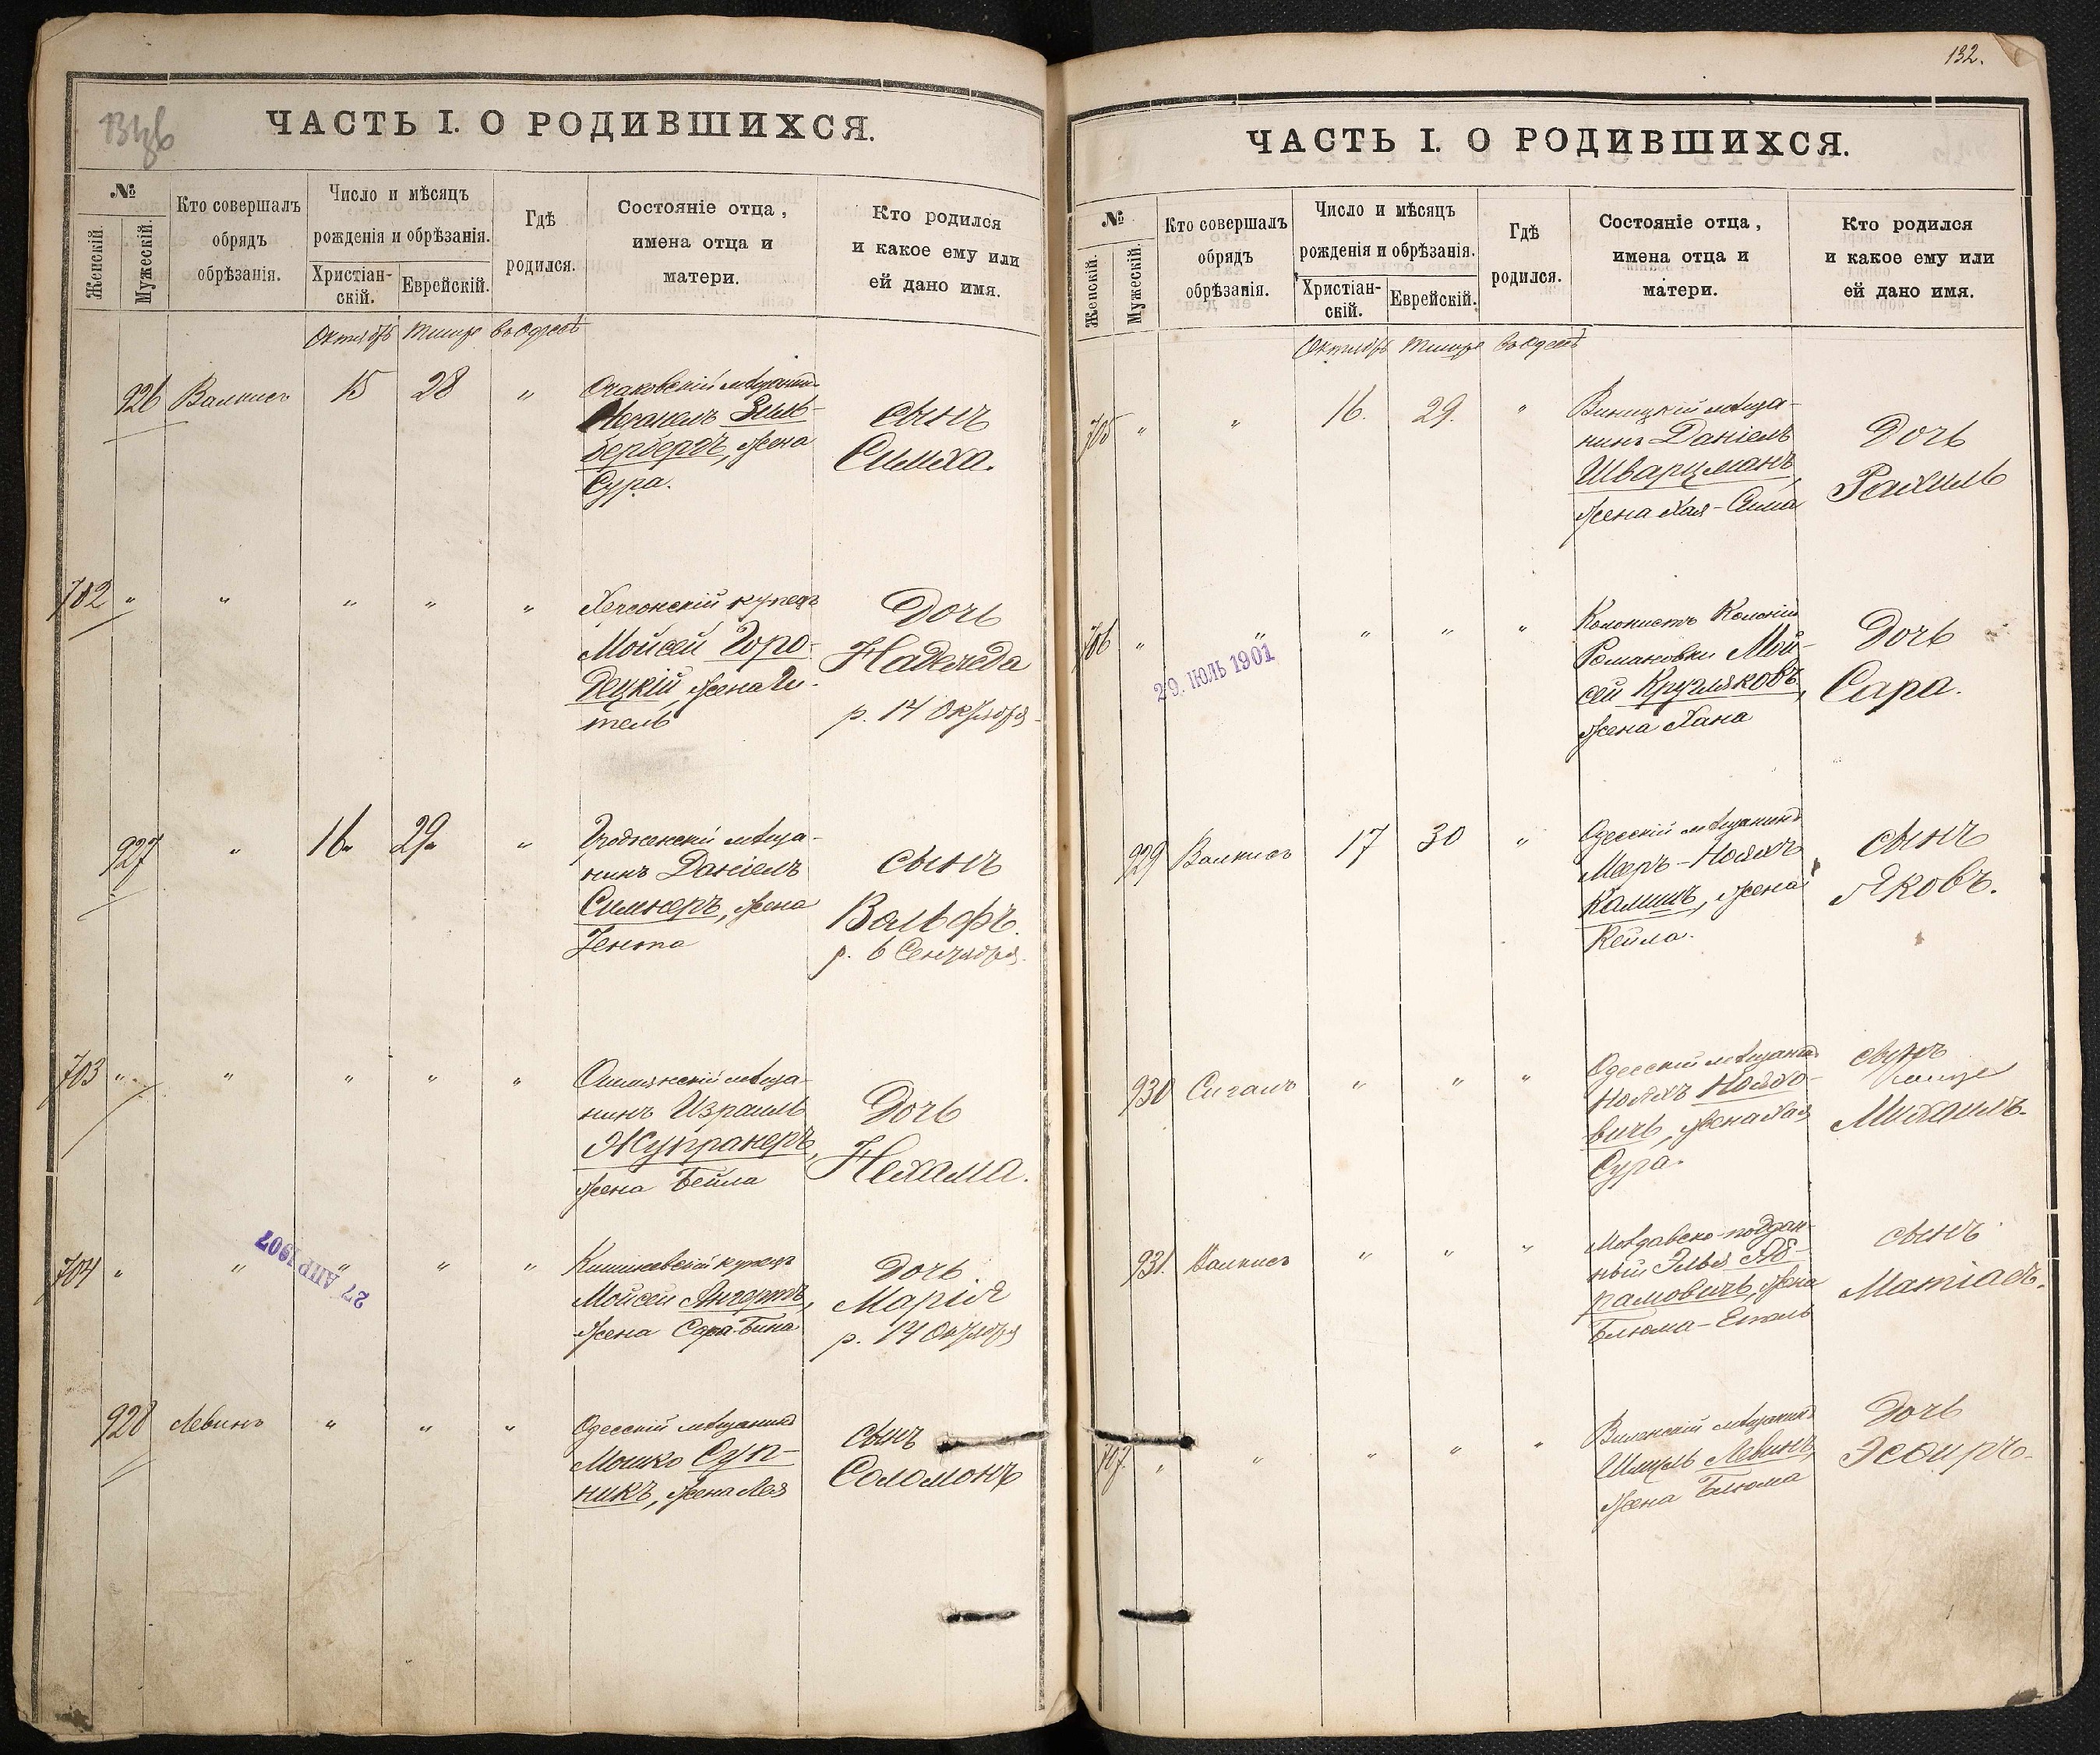 ЧАСТЬ I. О РОДИВШИХСЯ.
№
Женскій.
Мужескій.
Кто совершалъ
обрядъ
обрѣзанія.
Число и мѣсяцъ
рожденія и обрѣзанія.
Христіан-
скій.
Еврейскій.
Гдѣ
родился.
Состояніе отца,
имена отца и
матери.
Кто родился
и какое ему или
ей дано имя.
Октябрь Тишре въ Одессѣ
926 Валкисъ 15 28 "
Очаковскій мѣщанинъ
Зиль-
бербердъ, жена
Сура.
сынъ
Симха.
702 " " " " "
Херсонскій купецъ
Мойсей Горо-
децкій, жена Ги-
тель
Дочь
Надежда
р. 14 Октября
927 " 16. 29. "
Гродненскій мѣща-
нинъ Даніель
Симнеръ, жена
Гента
сынъ
Вольфъ.
р. 6 Сентября.
703 " " " " "
Ошмянскій мѣща-
нинъ Израиль
Жупранеръ,
жена Бейла
Дочь
Нехама.
704 " " " " "
27 АПР 1907
Кишиневскій купецъ
Мойсей Ангертъ,
жена Сара-Бина
Дочь
Марія
р. 14 Октября
928 Левинъ " " "
Одесскій мѣщанинъ
Мошко Суп-
никъ, жена Лея
сынъ
Соломонъ
132.
ЧАСТЬ I. О РОДИВШИХСЯ.
№
Женскій.
Мужескій.
Кто совершалъ
обрядъ
обрѣзанія.
Число и мѣсяцъ
рожденія и обрѣзанія.
Христіан-
скій.
Еврейскій.
Гдѣ
родился.
Состояніе отца,
имена отца и
матери.
Кто родился
и какое ему или
ей дано имя.
Октябрь Тишре въ Одессѣ
705 " " 16. 29. "
Виницкій мѣща-
нинъ Даніель
Шварцманъ,
жена Хая-Сима
Дочь
Рахиль
706 " " " " "
29. ІЮЛЬ 1901
Колонистъ Колоніи
Романовки Мой-
сей Кругляковъ,
жена Хана
Дочь
Сара.
929 Валкисъ 17 30 "
Одесскій мѣщанинъ
Мееръ-Нойехъ
Калишъ, жена
Кейла.
сынъ
Яковъ.
930 Сигалъ " " "
Одесскій мѣщанинъ
Нойехъ Нойхо-
вичъ, жена Хая
Сура.
сынъ
Михаилъ.
931. Валкисъ " " "
Молдавско-поддан-
ный Элья Аб-
рамовичъ, жена
Блюма-Етель
сынъ
Матіасъ.
707. " " " " "
Виленскій мѣщанинъ
Шмуль Левинъ,
жена Блюма
Дочь
Эсѳирь.